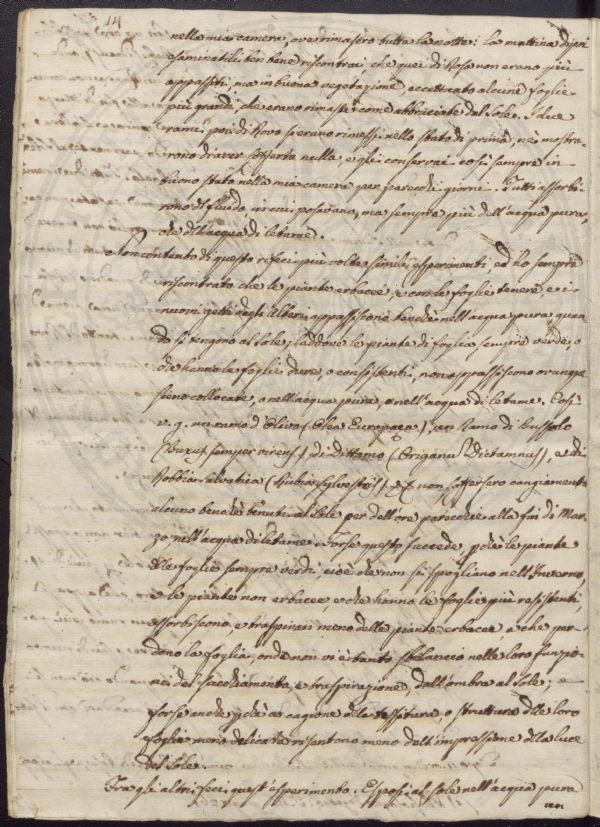 14
nella mia camera, ove rimasero tutta la notte: la mattina di poi
esaminatili ben bene riscontrai che quei di Rosa non erano più
appassiti, ma in buona vegetazione, eccettuato alcune foglie
più grandi, che erano rimaste come abbruciate dal Sole. I due
rami poi di Rovo si erano rimessi nello stato di prima, nè mostra-
rono d'aver sofferto nulla, e gli conservai così sempre in
buono stato nella mia camera per parecchi giorni. Tutti assorbi-
rono il fluido, in cui posavano, ma sempre più dell'acqua pura,
che dell'acqua di letame.
Non contento di questo rifeci più volte simili esperimenti ed ho sempre
riscontrato che le piante erbacee, e con le foglie tenere, e i
nuovi getti degli Alberi appassiscono benchè nell'acqua pura quan-
do si tengono al Sole; laddove le piante di foglia sempre verde, o
che hanno le foglie dure, o consistenti, non appassiscono ovunque
sieno collocate, o nell'acqua pura, o nell'acqua di letame. Così
v. g. un ramo d'Olivo (Olea Europaea), un Ramo di bussolo
(Buxus semper virens), di Dittamo (Origanus Dictamnus), e di
Robbia salvatica (Rubia sylvestris) &c non soffersero cangiamento
alcuno benchè tenuti al Sole per dell'ore parecchie alla fin di Mar-
zo nell'acqua di letame. Forse questo succede, perchè le piante
di foglie sempre verdi, cioè che non si spogliano nell'Inverno,
e le piante non erbacee, e che hanno le foglie più resistenti,
assorbiscono, e traspirano meno delle piante erbacee o che per-
dono la foglia, onde non vi è tanto sbilancio nelle loro funzio-
ni del succhiamento, e traspirazione dall'ombra al Sole; e
forse anche perchè a cagione della tessitura, o struttura delle loro
foglie meno delicata risentono meno dell'impressione della luce
del Sole.
Fra gli altri feci quest'esperimento. Esposi al Sole nell'acqua pura
un